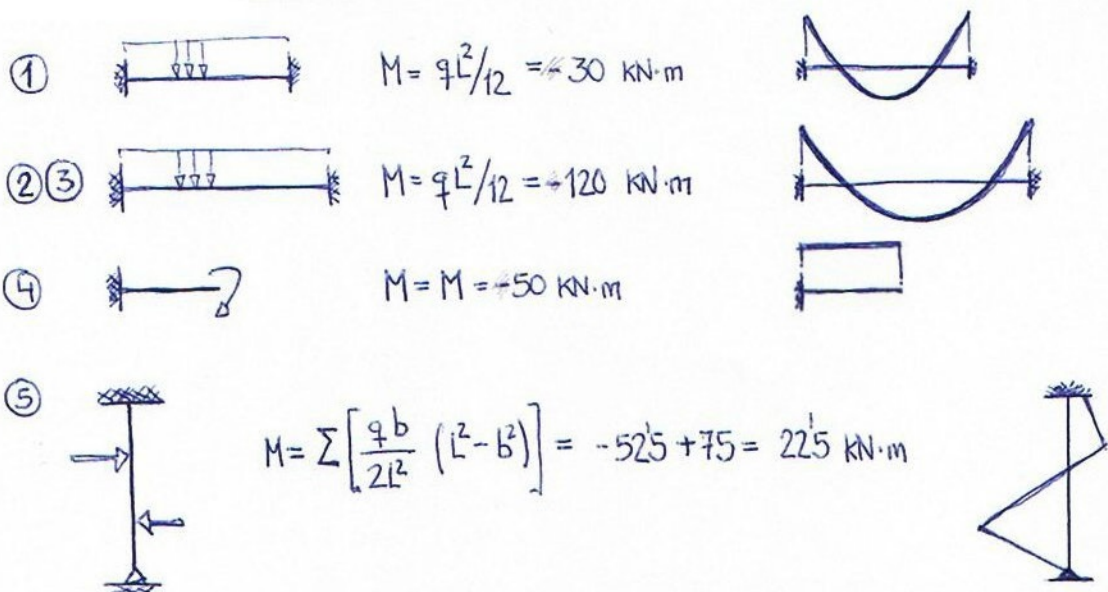 ① M = qL²/12 = -30 KN·m
②③ M = qL²/12 = -120 KN·m
④ M = M = -50 KN·m
⑤ M = Σ[qb/2L² (L²-b²)] = -52'5 + 75 = 22'5 KN·m